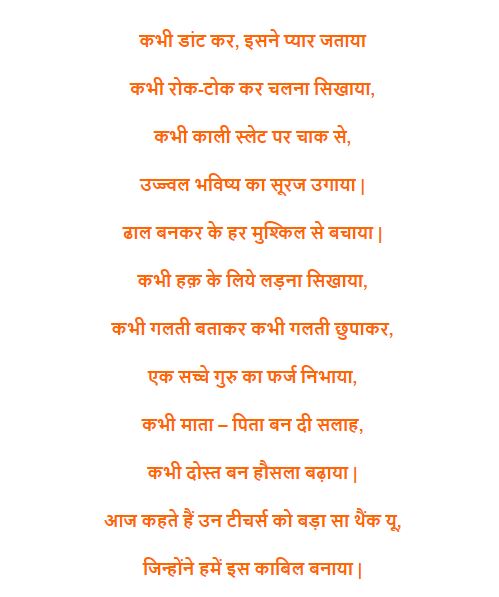 कभी डांट कर, इसने प्यार जताया
कभी रोक-टोक कर चलना सिखाया,
कभी काली स्लेट पर चाक से,
उज्ज्वल भविष्य का सूरज उगाया |
ढाल बनकर के हर मुश्किल से बचाया |
कभी हक़ के लिये लड़ना सिखाया,
कभी गलती बताकर कभी गलती छुपाकर,
एक सच्चे गुरु का फर्ज निभाया,
कभी माता – पिता बन दी सलाह,
कभी दोस्त बन हौसला बढ़ाया |
आज कहते हैं उन टीचर्स को बड़ा सा थैंक यू,
जिन्होंने हमें इस काबिल बनाया |